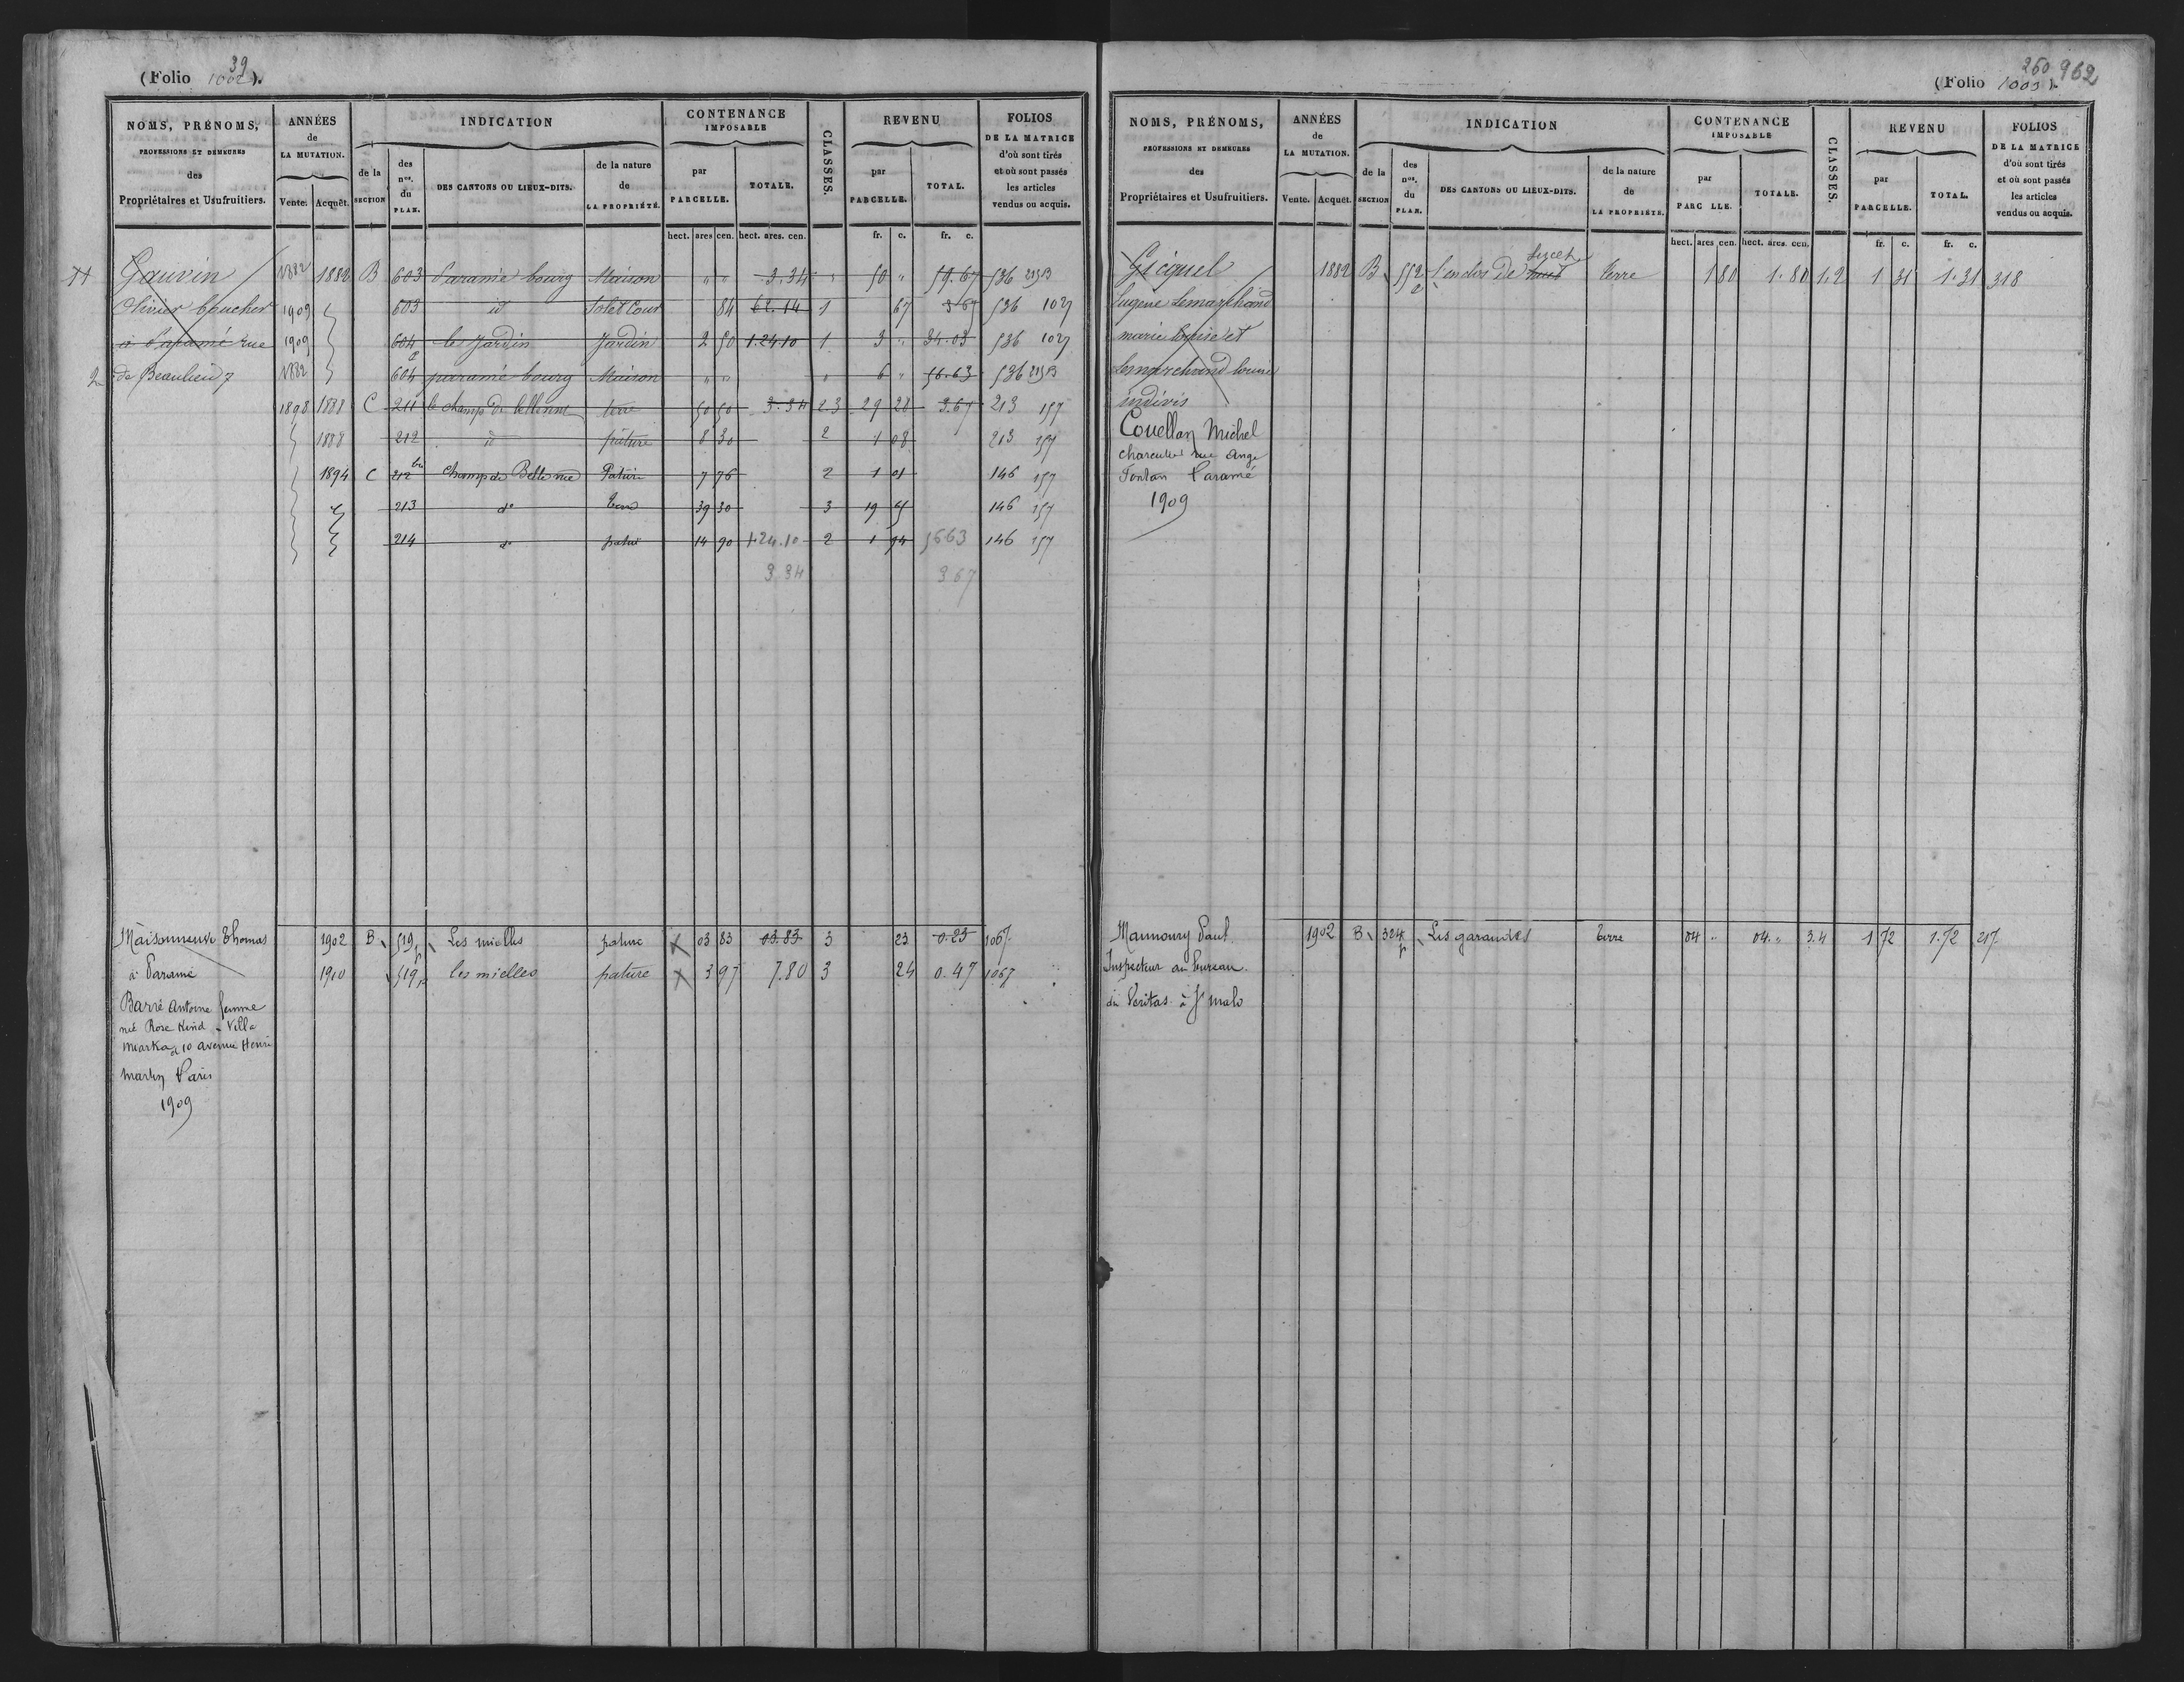 39
(Folio 1002).
NOMS, PRÉNOMS,
PROFESSIONS ET DEMEURES
des
Propriétaires et Usufruitiers.
ANNÉES
de
LA MUTATION.
Vente. Acquêt.
INDICATION
de la
SECTION
des
nos.
du
PLAN.
DES CANTONS OU LIEUX-DITS.
de la nature
de
LA PROPRIÉTÉ.
CONTENANCE
IMPOSABLE
par
PARCELLE.
TOTALE.
CLASSES.
REVENU
par
PARCELLE.
TOTAL.
FOLIOS
DE LA MATRICE
d'où sont tirés
et où sont passés
les articles
vendus ou acquis.
hect. ares cen. hect. ares. cen. fr. c. fr. c.
Gauvin 1882 1882 B 603 Paramé bourg Maison " " 3.34 " 50 " 59.67 536
Olivier boucher 1909 603 id Sol et Cour 84 62.14 1 67 3.67 536 1027
à Paramé rue 1909 604 le Jardin Jardin 2 50 1.24.10 1 3 " 34.03 536 1027
2 de Beaulieu 7 1882 604 paramé bourg Maison " " " 6 " 56.63 536
1898 1888 C 211 le champ de bellevue terre 50 50 3.34 2.3 29 28 3.67 213 157
1888 212 id pâture 8 30 2 1 08 213 157
1894 C 212 bis Champ de Bellevue Pature 7 76 2 1 01 146 157
213 do terre 39 30 3 19 146 157
214 do pature 14 90 1.24.10 2 1 94 5663 146 157
3.34 3.67
Maisonneuve Thomas 1902 B 519p Les mielles pature X 03 83 03.83 3 23 0.23 1067
à Paramé 1910 519p les mielles pature X 3 97 7.80 3 24 0.47 1067
Barré Antoine femme
née Rose Kind - Villa
Miarka à 10 avenue Henri
Martin Paris
1909
260 962
(Folio 1003).
NOMS, PRÉNOMS,
PROFESSIONS ET DEMEURES
des
Propriétaires et Usufruitiers.
ANNÉES
de
LA MUTATION.
Vente. Acquêt.
INDICATION
de la
SECTION
des
nos.
du
PLAN.
DES CANTONS OU LIEUX-DITS.
de la nature
de
LA PROPRIÉTÉ.
CONTENANCE
IMPOSABLE
par
PARC LLE.
TOTALE.
CLASSES.
REVENU
par
PARCELLE.
TOTAL.
FOLIOS
DE LA MATRICE
d'où sont tirés
et où sont passés
les articles
vendus ou acquis.
hect. ares cen. hect. ares. cen. fr. c. fr. c.
Gicquel 1882 B 552 l'enclos de terre 1 80 1.80 1.2 1 31 1.31 318
Eugene Lemarchand
marie Louise et
Lemarchand Louise
indivis
Couellan Michel
charcutier rue Ange
Fontan Paramé
1909
Mannoury Paul 1902 B 324p Les garandes terre 04 " 04. " 3.4 1 72 1.72 217
Inspecteur au bureau
du Veritas à St malo